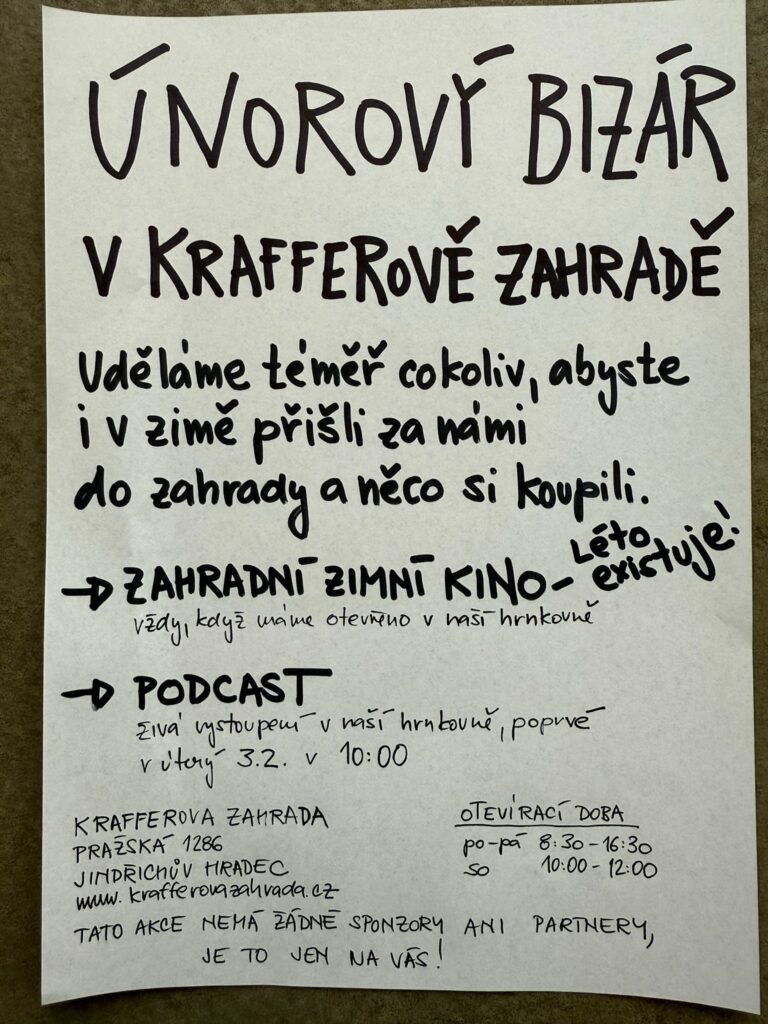 ÚNOROVÝ BIZÁR
V KRAFFEROVĚ ZAHRADĚ
Uděláme téměř cokoliv, abyste
i v zimě přišli za námi
do zahrady a něco si koupili.
→ ZAHRADNÍ ZIMNÍ KINO – Léto existuje!
vždy, když máme otevřeno v naší hrnkovně
→ PODCAST
živá vystoupení v naší hrnkovně, poprvé
v úterý 3.2. v 10:00
KRAFFEROVA ZAHRADA
PRAŽSKÁ 1286
JINDŘICHŮV HRADEC
www.krafferovazahrada.cz
OTEVÍRACÍ DOBA
po-pá 8:30-16:30
so 10:00-12:00
TATO AKCE NEMÁ ŽÁDNÉ SPONZORY ANI PARTNERY,
JE TO JEN NA VÁS!